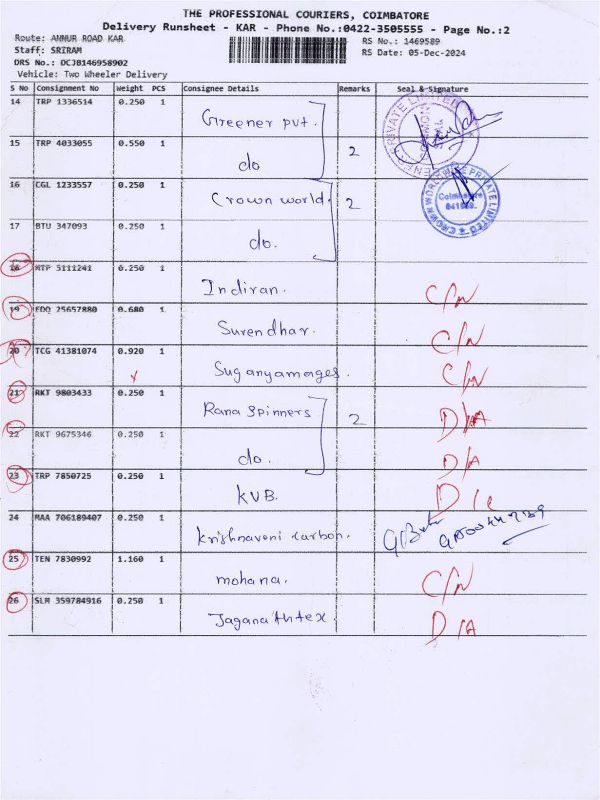 THE PROFESSIONAL COURIERS, COIMBATORE
Delivery Runsheet - KAR - Phone No.:0422-3505555 - Page No.:2
Route: ANNUR ROAD KAR
RS No.: 1469589
Staff: SRIRAM
RS Date: 05-Dec-2024
DRS No.: DCJB146958902
Vehicle: Two Wheeler Delivery
S No Consignment No Weight PCS Consignee Details Remarks Seal & Signature
14 TRP 1336514 0.250 1 Greener pvt.
15 TRP 4033055 0.550 1 do 2
16 CGL 1233557 0.250 1 Crown world. 2
17 BTU 347093 0.250 1 do.
18 MTP 5111241 0.250 1 Indiran. C/N
19 EDQ 25657880 0.680 1 Surendhar. C/N
20 TCG 41381074 0.920 1 Suganyamages. C/N
21 RKT 9803433 0.250 1 Rana Spinners 2 D/A
22 RKT 9675346 0.250 1 do. D/A
23 TRP 7850725 0.250 1 KVB.
24 MAA 706189407 0.250 1 Krishnaveni carbon.
25 TEN 7830992 1.160 1 mohana. C/N
26 SLM 359784916 0.250 1 Jaganathtex. D/A